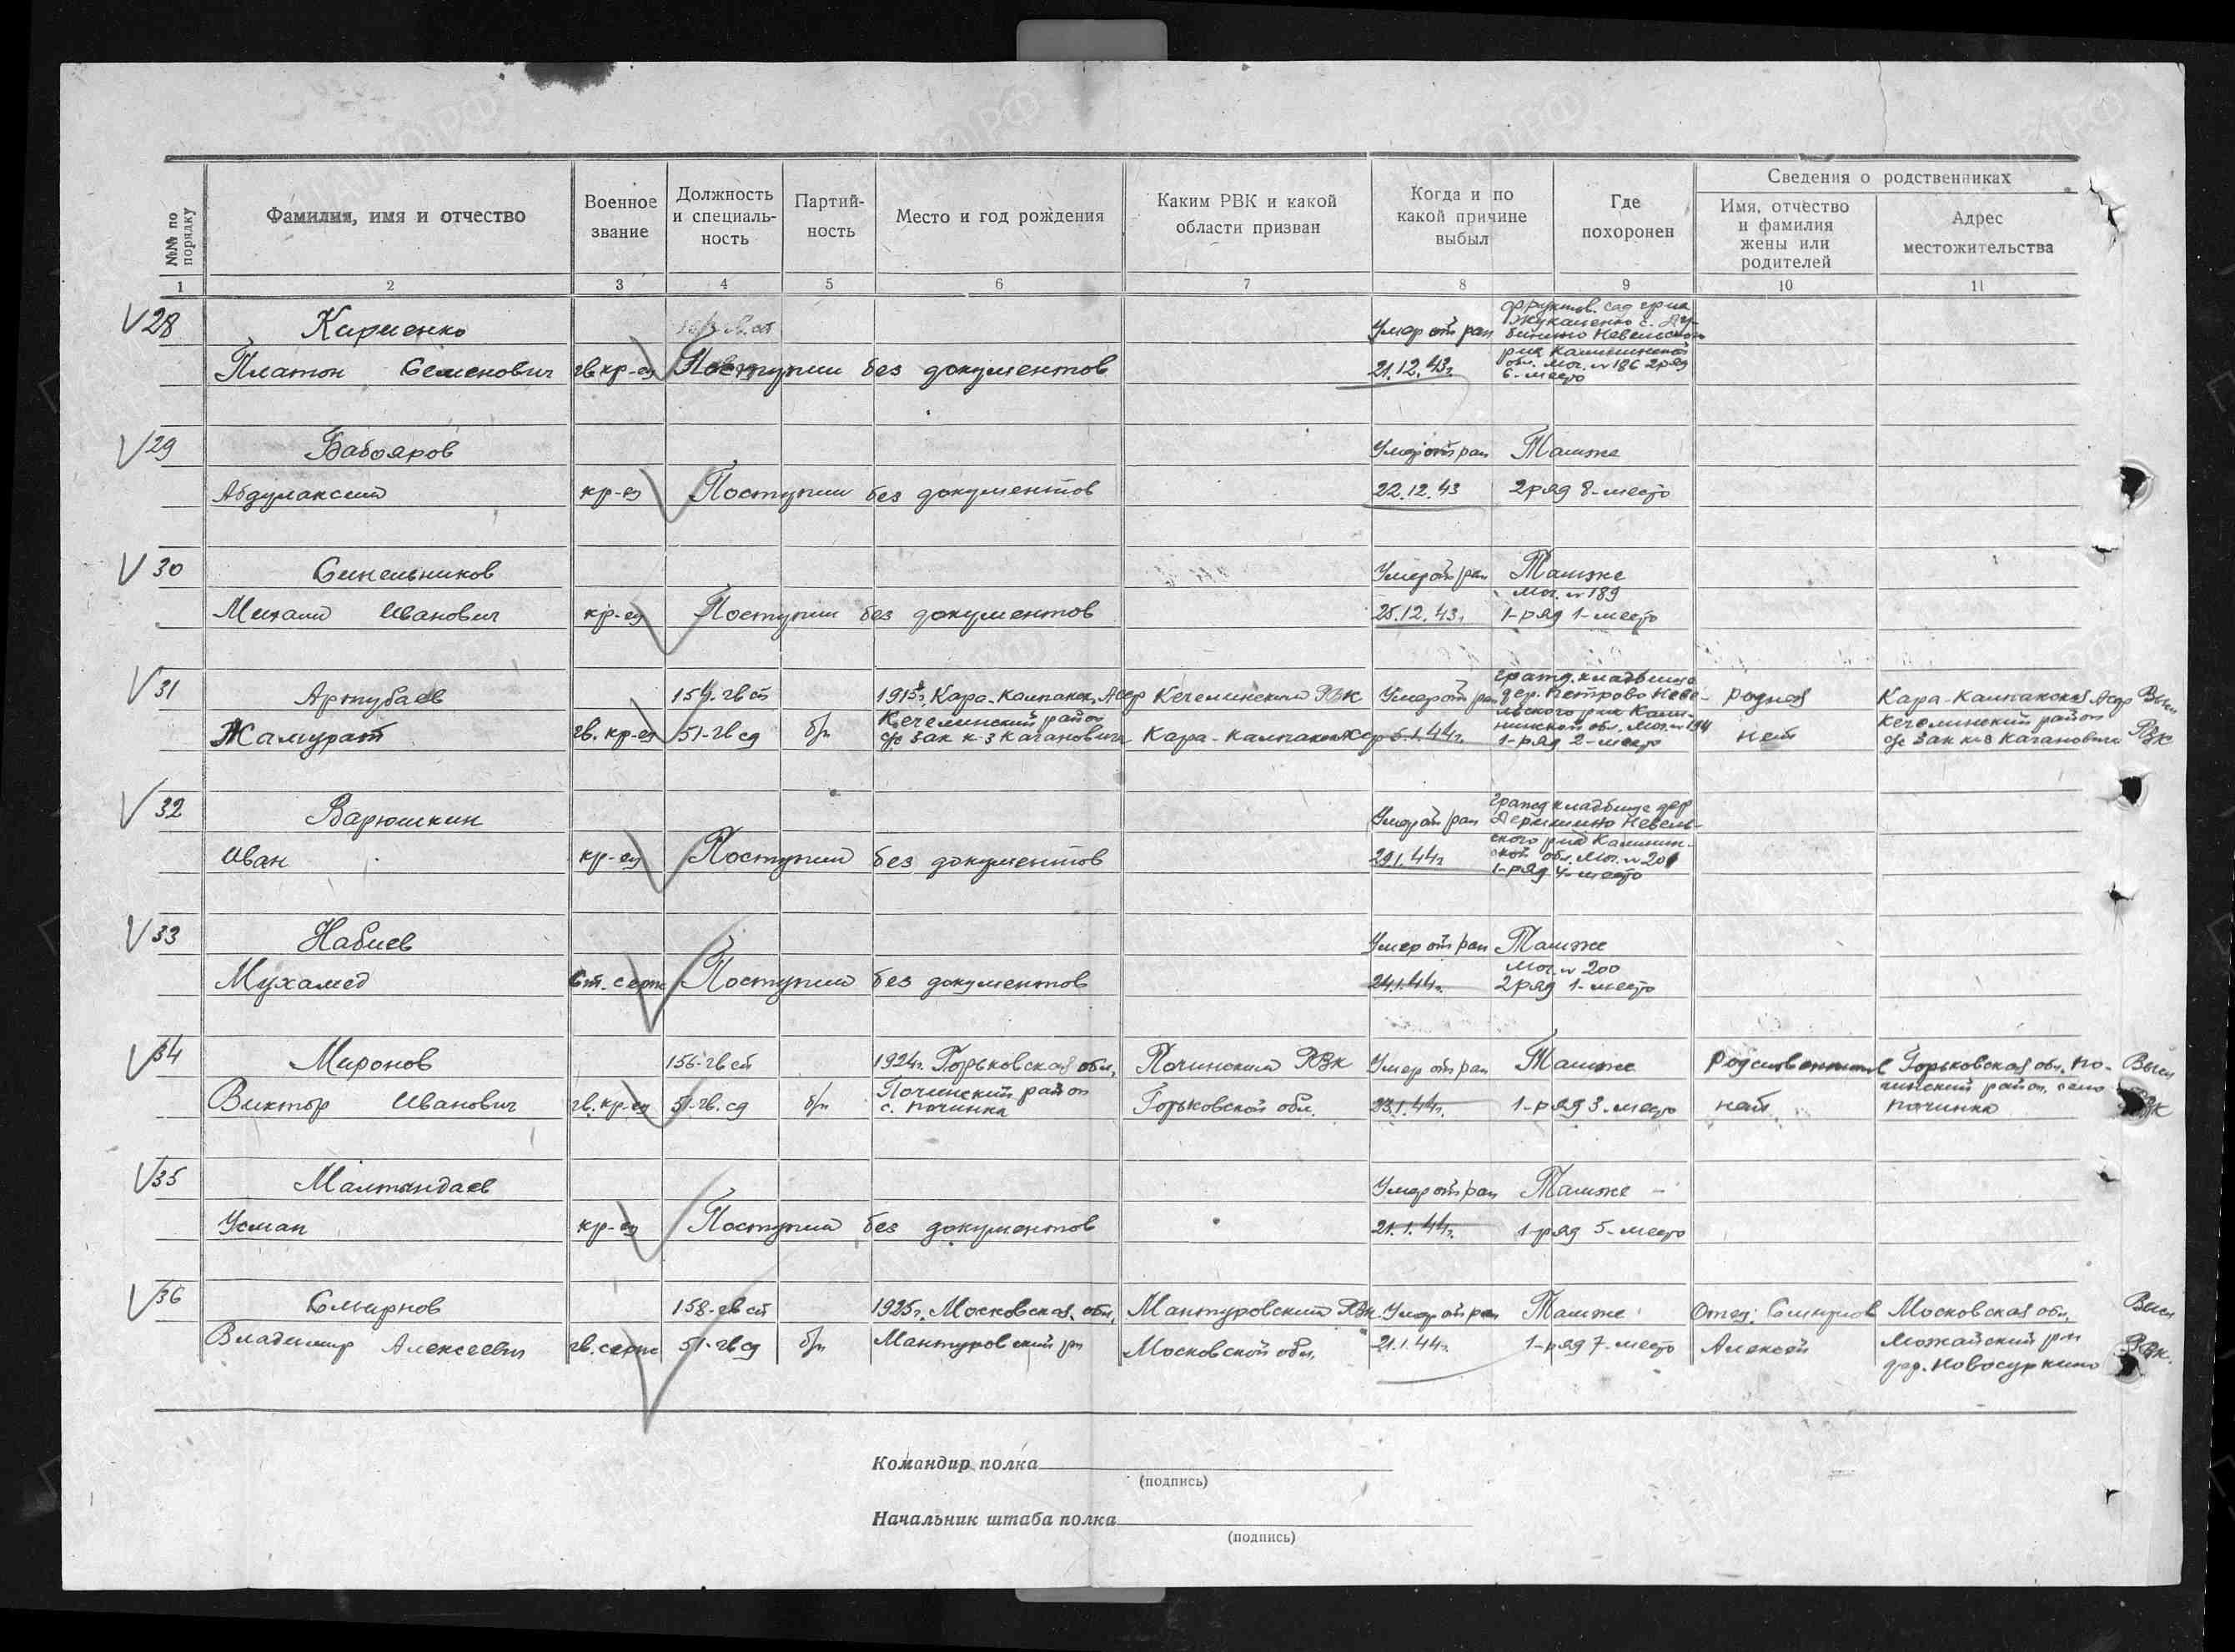 №№ по порядку
Фамилия, имя и отчество
Военное звание
Должность и специаль-ность
Партий-ность
Место и год рождения
Каким РВК и какой области призван
Когда и по какой причине выбыл
Где похоронен
Сведения о родственниках
Имя, отчество и фамилия жены или родителей
Адрес местожительства
1 2 3 4 5 6 7 8 9 10 11
28 Кириенко Умер от ран
Платон Семенович гв кр-ец Поступил без документов 21.12.43г.
фруктов. сад гр-на
Жукаленко с.
Невельского
р-на Калининской
обл. мог. № 186 2 ряд
6-место
29 Бабояров Умер от ран Там же
Абдулаксим кр-ец Поступил без документов 22.12.43 2 ряд 8-место
30 Синельников Умер от ран Там же
мог. № 189
Михаил Иванович кр-ец Поступил без документов 25.12.43г. 1-ряд 1-место
31 Артубаев 154-гв сп 1915г. Кара-Калпакск. Асср Кегелинский РВК Умер от ран Родных Кара-Калпакская Асср
Жамурат гв. кр-ец 51-гв сд б/п Кегелинский район Кара-Калпакск 5.1.44г. нет Кегелинский район
с/с Зак к-з Кагановича
гражд. кладбище
дер. Петрово Неве-
льского р-на Кали-
нинской обл. Мог. № 194
1-ряд 2-место
с/с Зак к-з Кагановича
РВК
32 Варюшкин Умер от ран
Иван кр-ец Поступил без документов 29.1.44г
гражд кладбище дер
Невель-
ского р-на Калинин-
ской обл. Мог. № 201
1-ряд 4-место
33 Набиев Умер от ран Там же
мог. № 200
Мухамед Ст. серж Поступил без документов 24.1.44г. 2 ряд 1-место
34 Миронов 156-гв сп 1924г. Горьковская обл, Починский РВК Умер от ран Там же Родственников Горьковская обл. По-
чинский район, село
Виктор Иванович гв. кр-ец 51-гв. сд б/п Починский район Горьковской обл. 23.1.44г. 1-ряд 3-место нет Починка
с. Починка
РВК
35 Малтындаев Умер от ран Там же -
Усман кр-ец Поступил без документов 21.1.44г. 1-ряд 5-место
36 Смирнов 158-гв сп 1925г. Московская обл, Мантуровский РВК Умер от ран Там же Отец: Смирнов Московская обл,
Владимир Алексеевич гв. серж 51-гв сд б/п Мантуровский рн Московской обл, 21.1.44г. 1-ряд 7-место Алексей Можайский р-н
дер. Новосуркино
РВК.
Командир полка
(подпись)
Начальник штаба полка
(подпись)